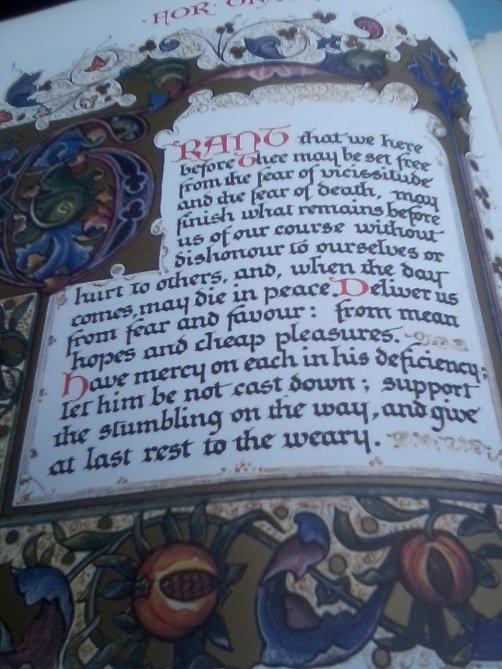 ·FOR·
GRANT that we here
before Thee may be set free
from the fear of vicissitude
and the fear of death, may
finish what remains before
us of our course without
dishonour to ourselves or
hurt to others, and, when the day
comes, may die in peace. Deliver us
from fear and favour: from mean
hopes and cheap pleasures.
have mercy on each in his deficiency;
let him be not cast down; support
the stumbling on the way, and give
at last rest to the weary.